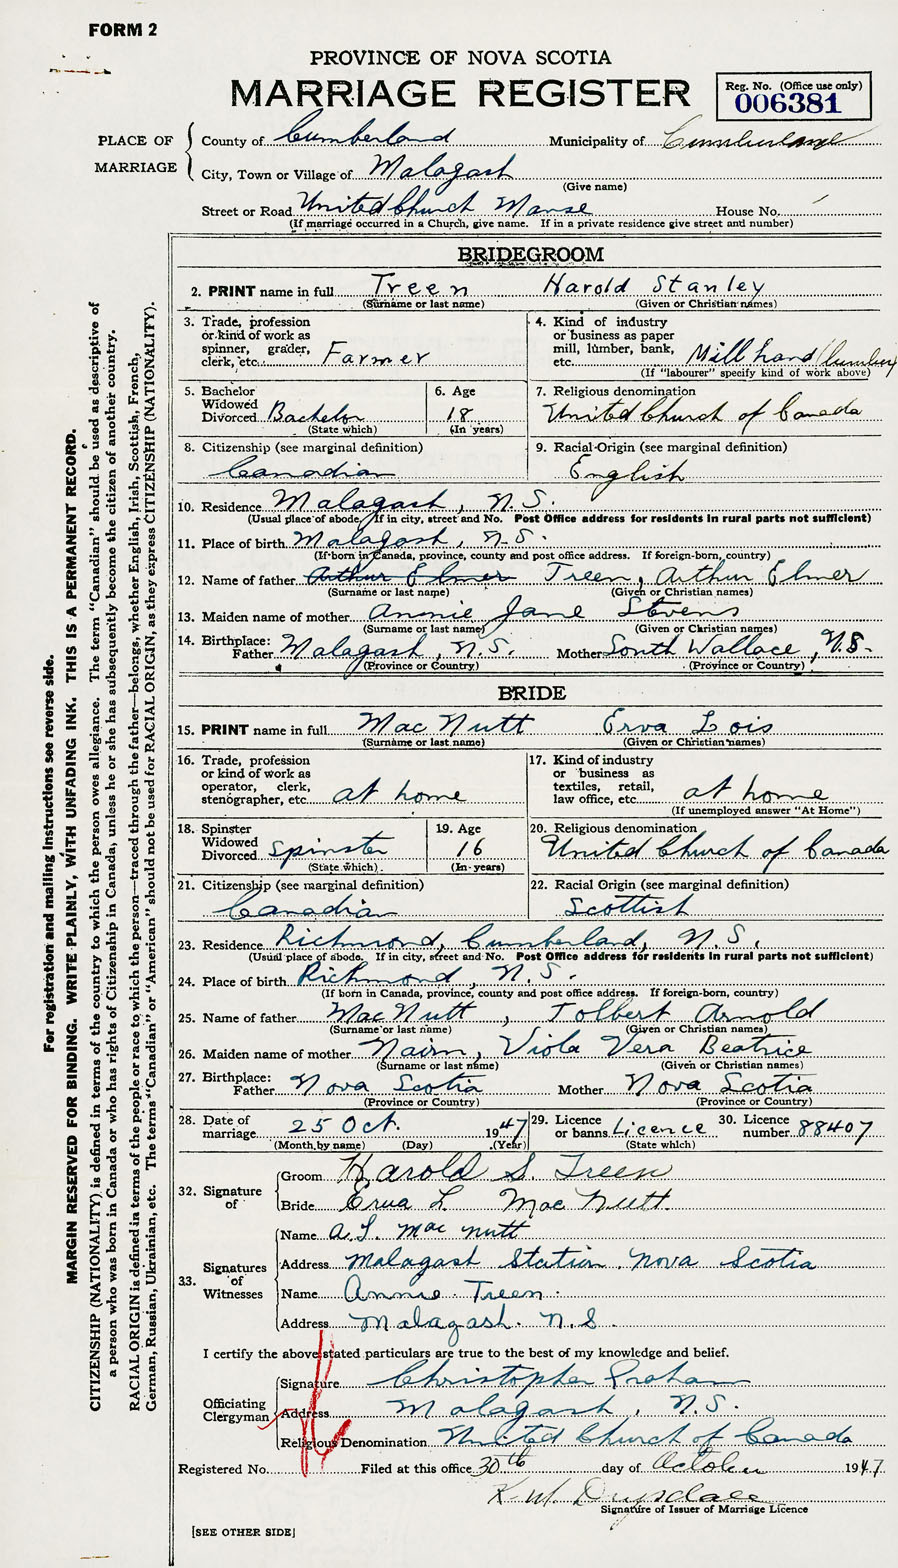 FORM 2
PROVINCE OF NOVA SCOTIA
MARRIAGE REGISTER
Reg. No. (Office use only)
006381
PLACE OF MARRIAGE
County of Cumberland Municipality of Cumberland
City, Town or Village of Malagash
(Give name)
Street or Road United Church Manse House No.
(If marriage occurred in a Church, give name. If in a private residence give street and number)
BRIDEGROOM
2. PRINT name in full Treen Harold Stanley
(Surname or last name) (Given or Christian names)
3. Trade, profession or kind of work as spinner, grader, clerk, etc. Farmer
4. Kind of industry or business as paper mill, lumber, bank, etc. Mill hand (lumber)
(If "labourer" specify kind of work above)
5. Bachelor Widowed Divorced Bachelor
(State which)
6. Age 18
(In years)
7. Religious denomination
United Church of Canada
8. Citizenship (see marginal definition)
Canadian
9. Racial Origin (see marginal definition)
English
10. Residence Malagash, N.S.
(Usual place of abode. If in city, street and No. Post Office address for residents in rural parts not sufficient)
11. Place of birth Malagash, N.S.
(If born in Canada, province, county and post office address. If foreign-born, country)
12. Name of father Arthur Elmer Treen, Arthur Elmer
(Surname or last name) (Given or Christian names)
13. Maiden name of mother Annie Jane Stevens
(Surname or last name) (Given or Christian names)
14. Birthplace: Father Malagash, N.S. Mother South Wallace, N.S.
(Province or Country) (Province or Country)
BRIDE
15. PRINT name in full MacNutt Erva Lois
(Surname or last name) (Given or Christian names)
16. Trade, profession or kind of work as operator, clerk, stenographer, etc. at home
17. Kind of industry or business as textiles, retail, law office, etc. at home
(If unemployed answer "At Home")
18. Spinster Widowed Divorced Spinster
(State which)
19. Age 16
(In years)
20. Religious denomination
United Church of Canada
21. Citizenship (see marginal definition)
Canadian
22. Racial Origin (see marginal definition)
Scottish
23. Residence Richmond, Cumberland, N.S.
(Usual place of abode. If in city, street and No. Post Office address for residents in rural parts not sufficient)
24. Place of birth Richmond, N.S.
(If born in Canada, province, county and post office address. If foreign-born, country)
25. Name of father MacNutt, Tolbert Arnold
(Surname or last name) (Given or Christian names)
26. Maiden name of mother Nairn, Viola Vera Beatrice
(Surname or last name) (Given or Christian names)
27. Birthplace: Father Nova Scotia Mother Nova Scotia
(Province or Country) (Province or Country)
28. Date of marriage 25 Oct. 1947
(Month by name) (Day) (Year)
29. Licence or banns Licence
(State which)
30. Licence number 88407
32. Signature of
Groom Harold S. Treen
Bride Erva L. MacNutt.
33. Signatures of Witnesses
Name A. L. MacNutt
Address Malagash Station. Nova Scotia
Name Annie Treen.
Address Malagash. N.S.
I certify the above stated particulars are true to the best of my knowledge and belief.
Officiating Clergyman
Signature Christopher Graham
Address Malagash, N.S.
Religious Denomination United Church of Canada
Registered No. Filed at this office 30th day of October 1947
K. M. Drysdale
Signature of Issuer of Marriage Licence
[SEE OTHER SIDE]
For registration and mailing instructions see reverse side.
MARGIN RESERVED FOR BINDING. WRITE PLAINLY, WITH UNFADING INK. THIS IS A PERMANENT RECORD.
CITIZENSHIP (NATIONALITY) is defined in terms of the country to which the person owes allegiance. The term "Canadian" should be used as descriptive of
a person who was born in Canada or who has rights of Citizenship in Canada, unless he or she has subsequently become the citizen of another country.
RACIAL ORIGIN is defined in terms of the people or race to which the person—traced through the father—belongs, whether English, Irish, Scottish, French,
German, Russian, Ukrainian, etc. The terms "Canadian" or "American" should not be used for RACIAL ORIGIN, as they express CITIZENSHIP (NATIONALITY).